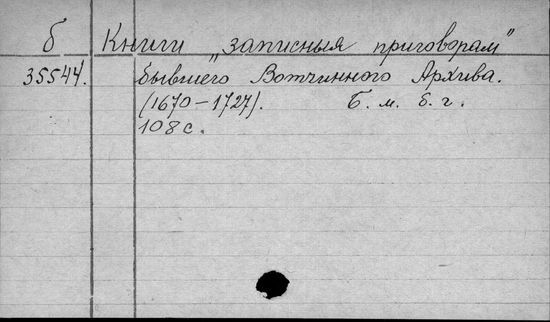 б Книги „записныя приговорам"
35544. бывшего Вотчинного Архива.
(1670-1727). Б. м. б. г.
108 с.